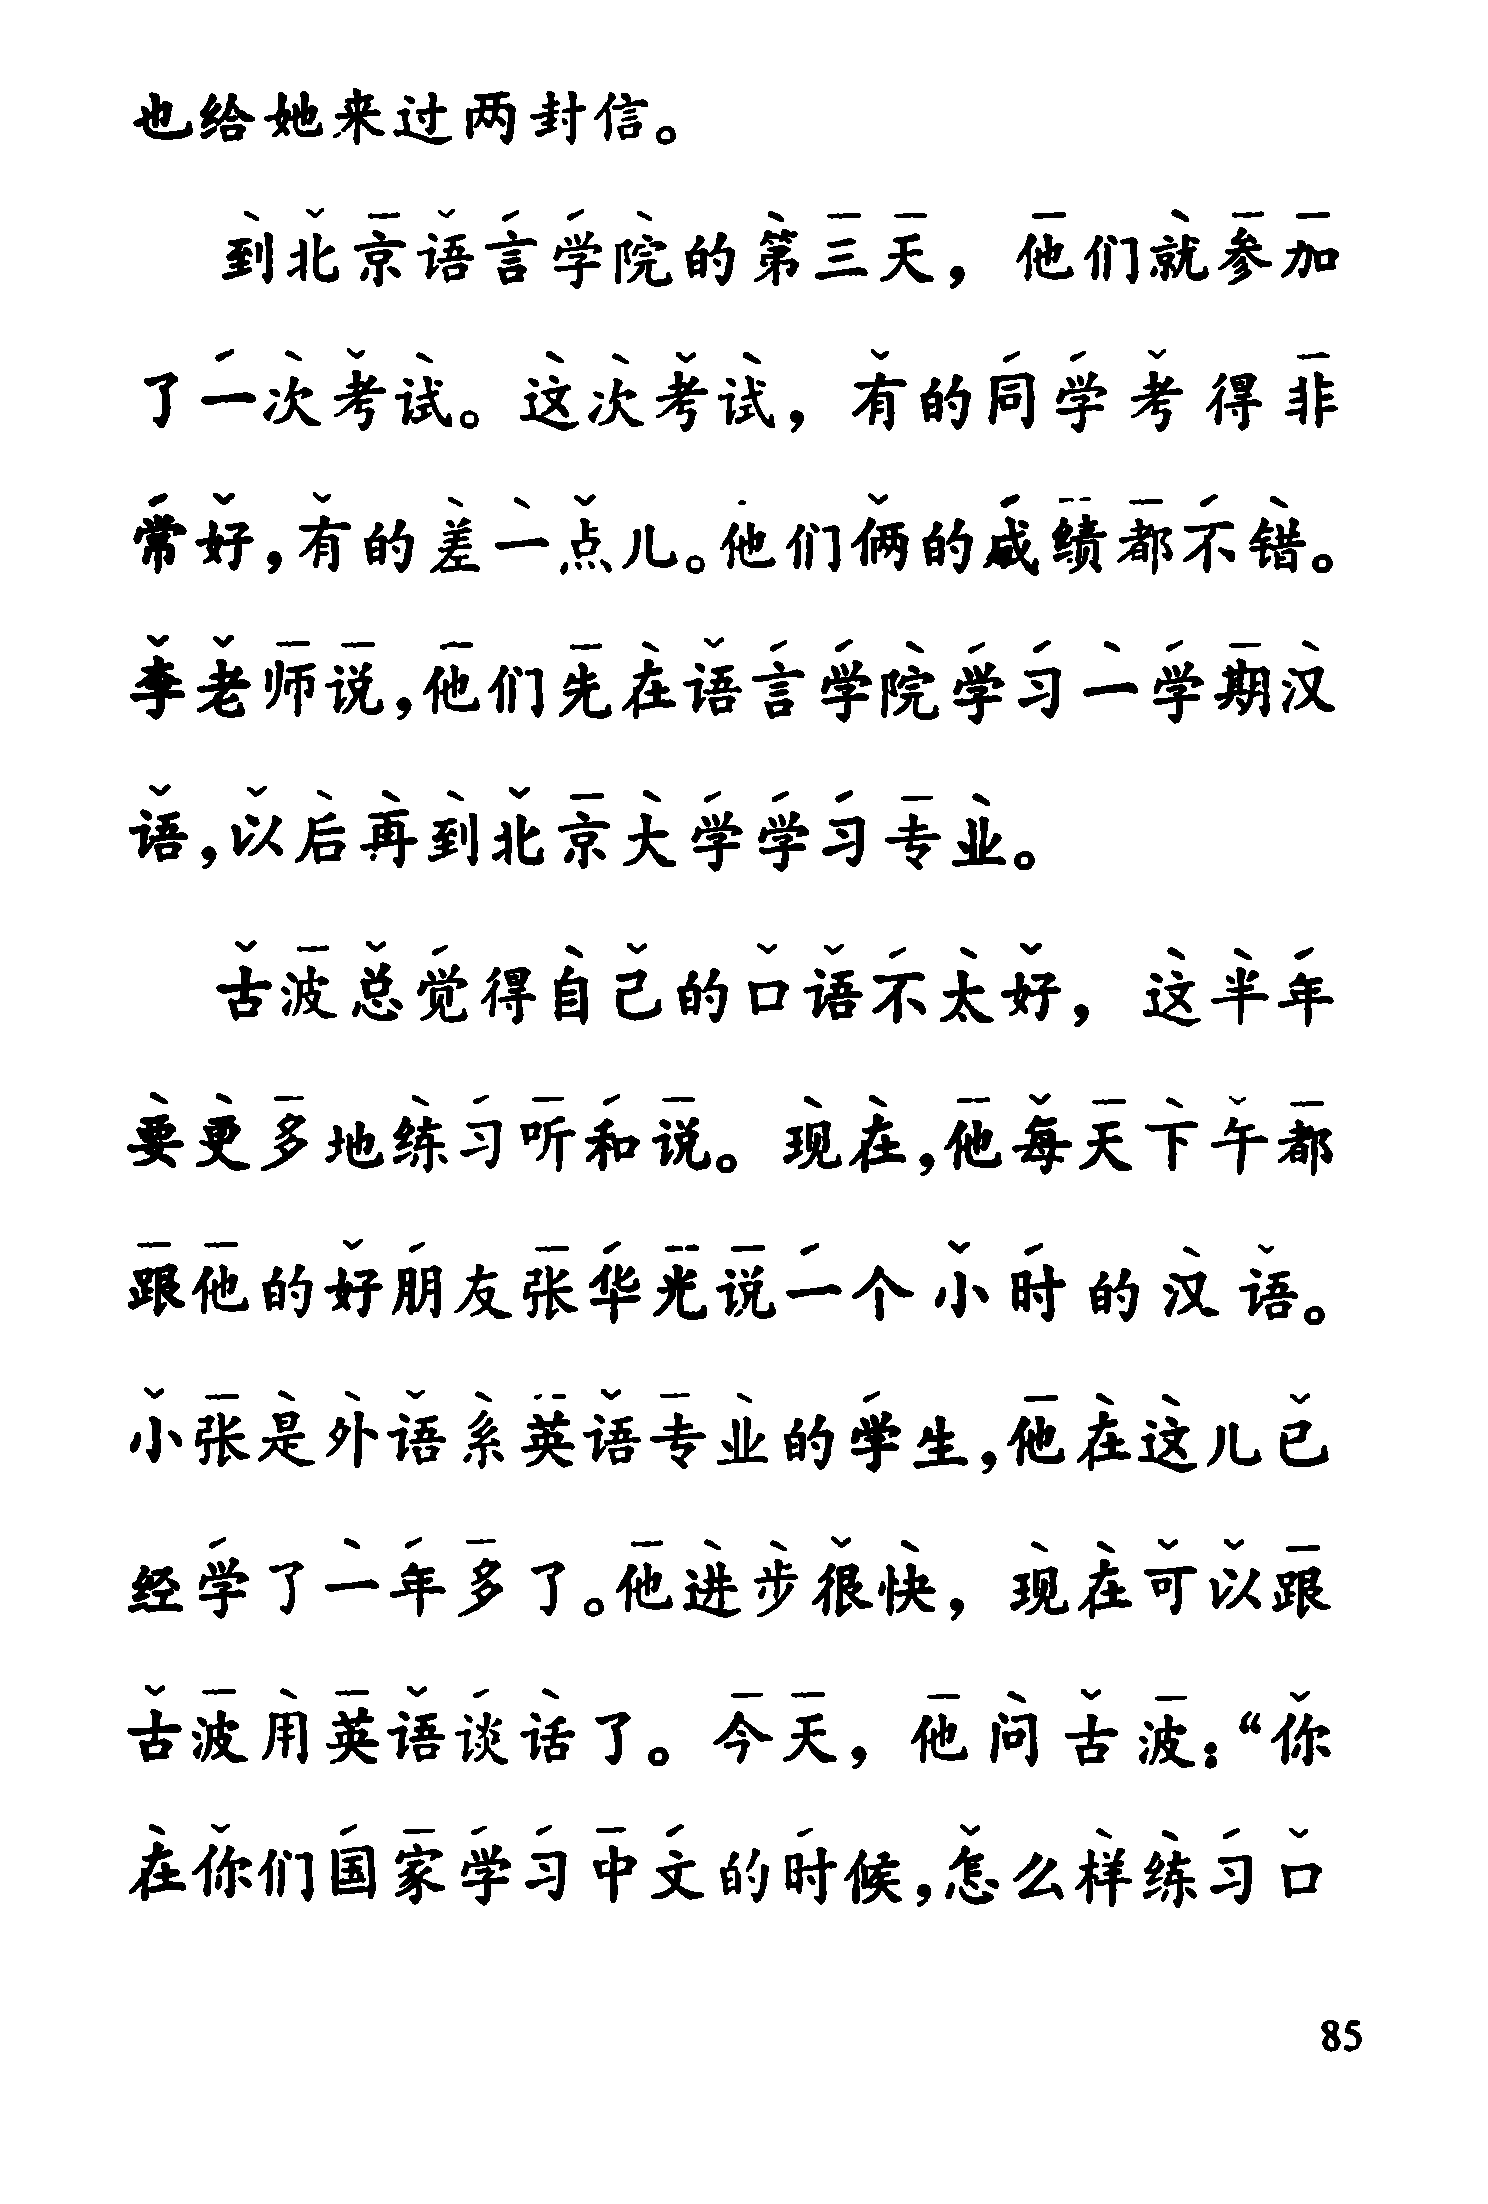 也给她来过两封信。
到北京语言学院的第三天，他们就参加
了一次考试。这次考试，有的同学考得非
常好，有的差一点儿。他们俩的成绩都不错。
李老师说，他们先在语言学院学习一学期汉
语，以后再到北京大学学习专业。
古波总觉得自己的口语不太好，这半年
要更多地练习听和说。现在，他每天下午都
跟他的好朋友张华光说一个小时的汉语。
小张是外语系英语专业的学生，他在这儿已
经学了一年多了。他进步很快，现在可以跟
古波用英语谈话了。今天，他问古波：“你
在你们国家学习中文的时候，怎么样练习口
85